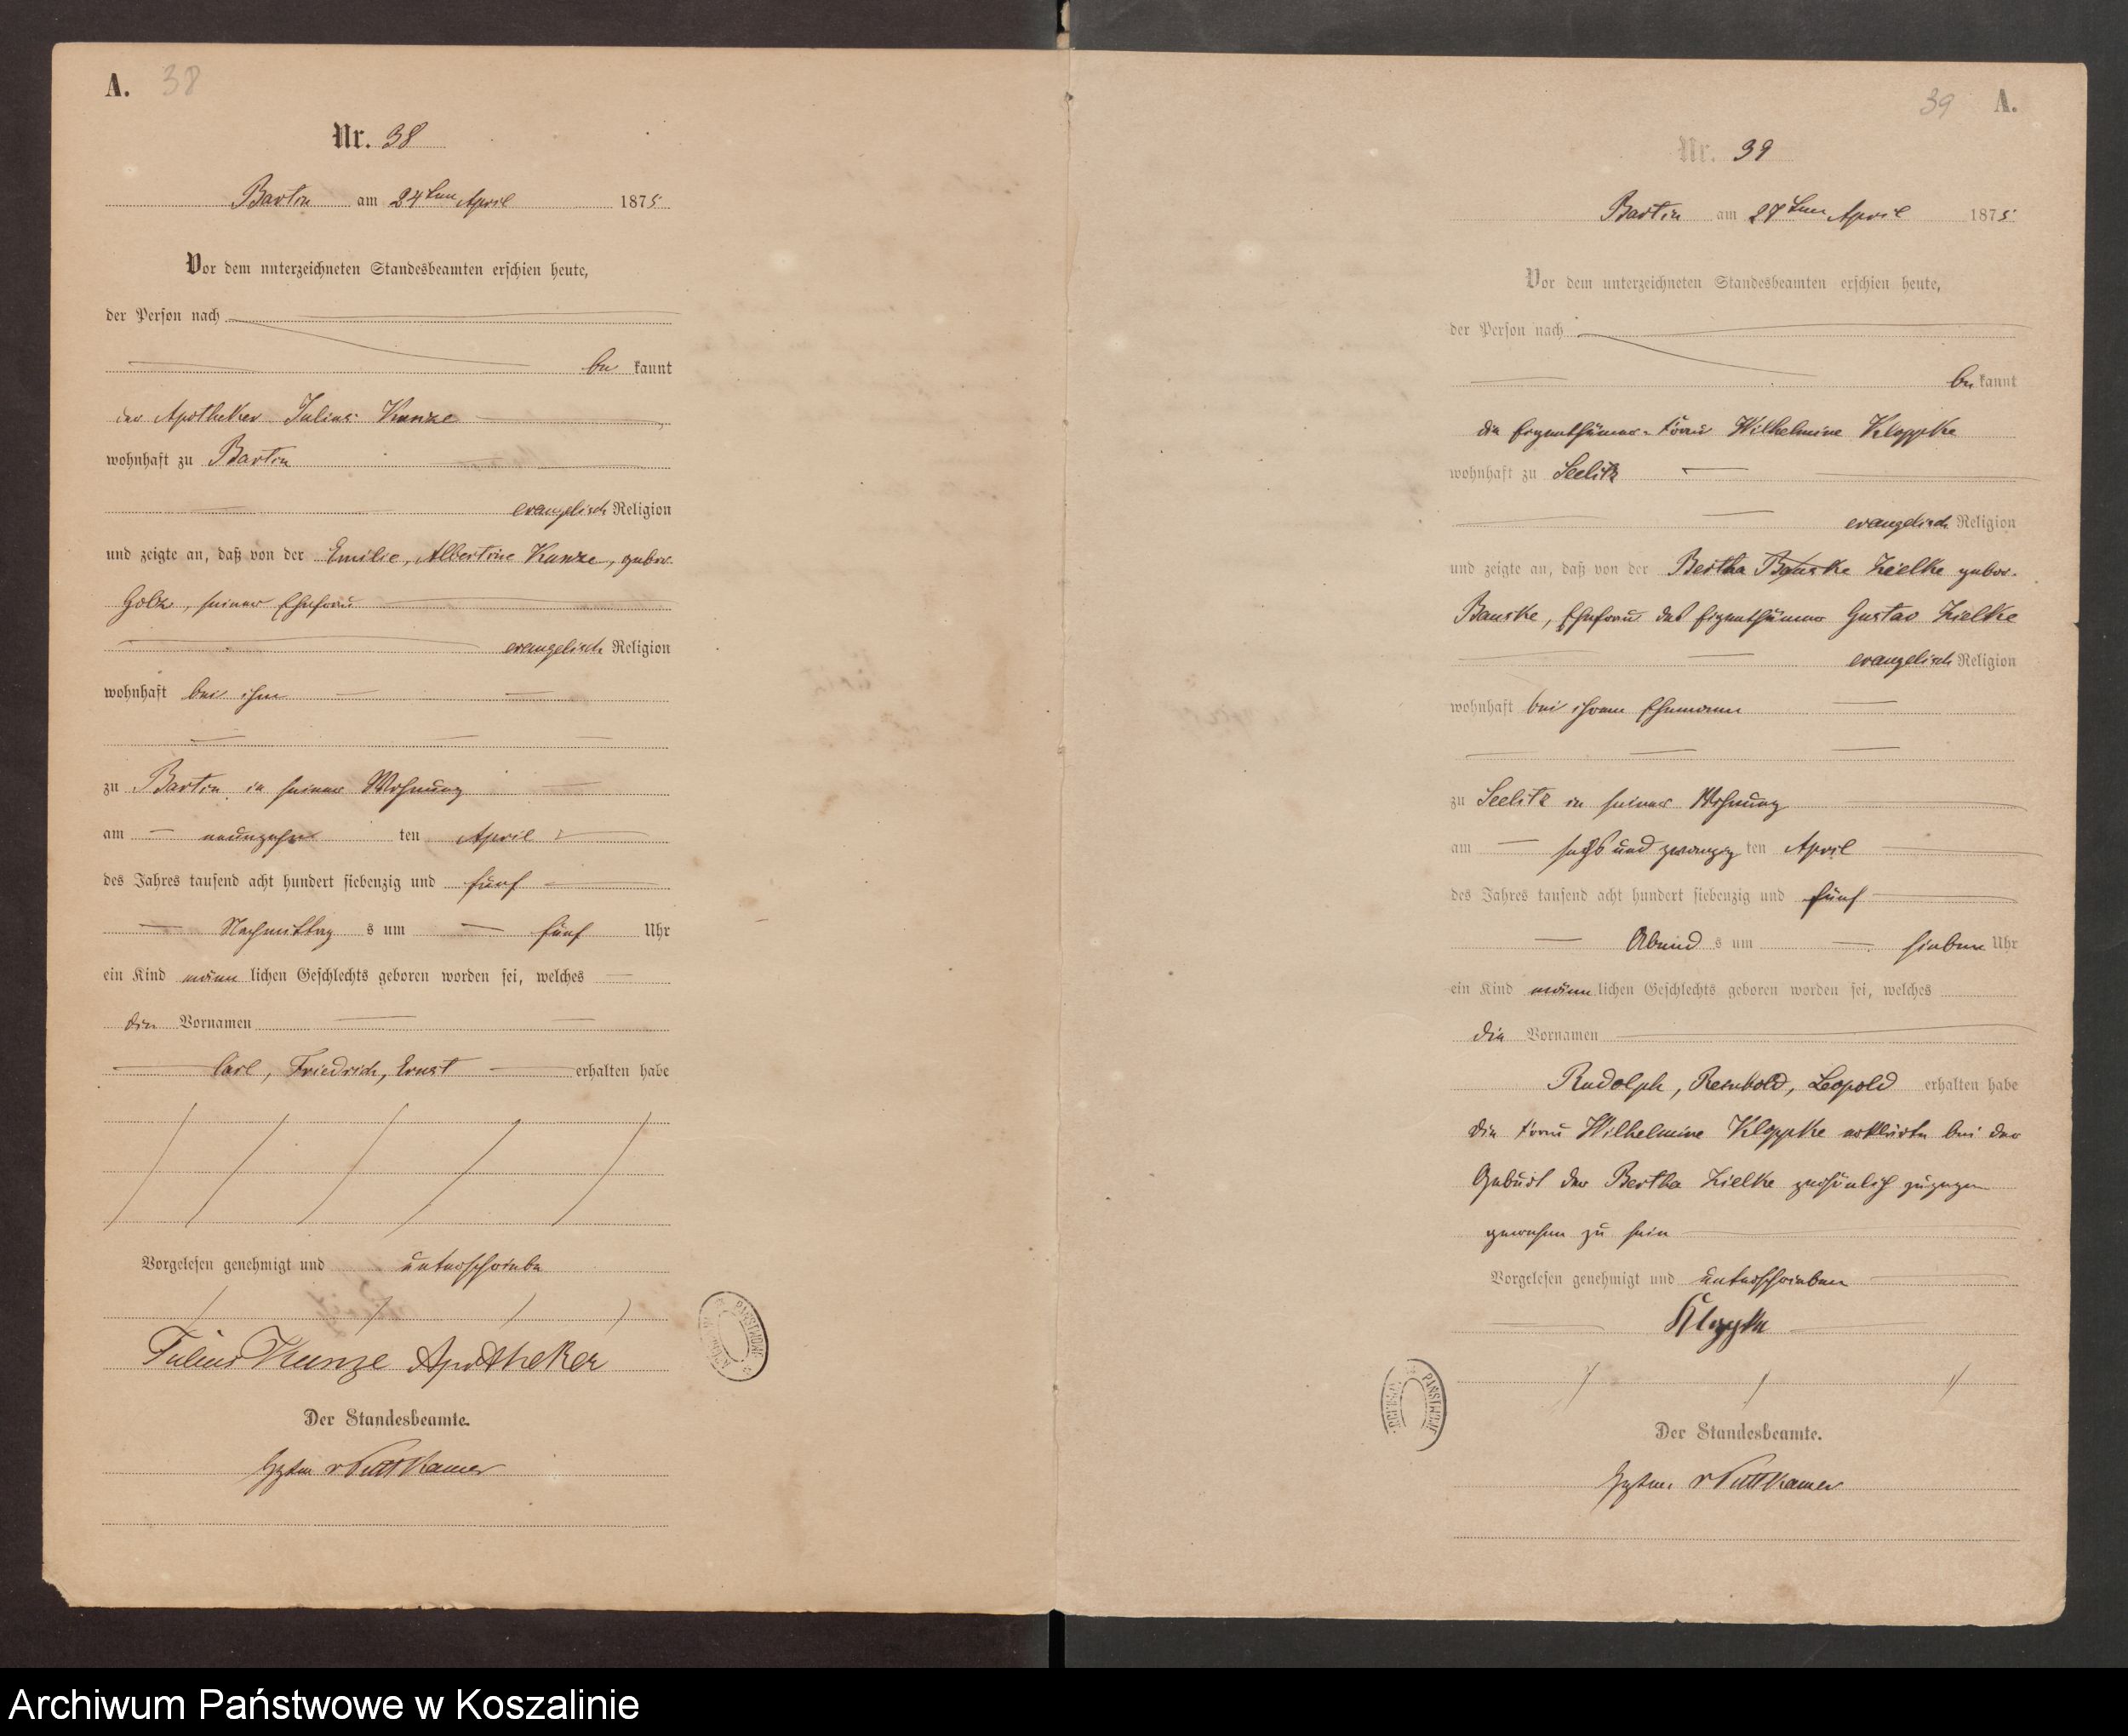 A. 38
Nr. 38
Bartin am 24ten April 1875
Vor dem unterzeichneten Standesbeamten erschien heute,
der Person nach
be kannt
der Apotheker Julius Kunze
wohnhaft zu Bartin
evangelisch Religion
und zeigte an, daß von der Emilie, Albertine Kunze, gebor.
Golz, seiner Ehefrau
evangelisch Religion
wohnhaft bei ihm
zu Bartin in seiner Wohnung
am neunzehn ten April
des Jahres tausend acht hundert siebenzig und fünf
Nachmittag s um fünf Uhr
ein Kind männ lichen Geschlechts geboren worden sei, welches
die Vornamen
Carl, Friedrich, Ernst erhalten habe
Vorgelesen genehmigt und unterschrieben
Julius Kunze Apotheker
Der Standesbeamte.
v Puttkamer
39 A.
Nr. 39
Bartin am 27ten April 1875
Vor dem unterzeichneten Standesbeamten erschien heute,
der Person nach
be kannt
die Eigenthümer-Frau Wilhelmine Kloppke
wohnhaft zu Seelitz
evangelisch Religion
und zeigte an, daß von der Bertha Banske Zielke gebor.
Banske, Ehefrau des Eigenthümer Gustav Zielke
evangelisch Religion
wohnhaft bei ihrem Ehemann
zu Seelitz in seiner Wohnung
am sechs und zwanzig ten April
des Jahres tausend acht hundert siebenzig und fünf
Abend s um sieben Uhr
ein Kind männ lichen Geschlechts geboren worden sei, welches
die Vornamen
Rudolph, Reinhold, Leopold erhalten habe
die Frau Wilhelmine Kloppke erklärte bei der
Geburt der Bertha Zielke persönlich zugegen
gewesen zu sein
Vorgelesen genehmigt und unterschrieben
Kloppke
Der Standesbeamte.
v Puttkamer
Archiwum Państwowe w Koszalinie